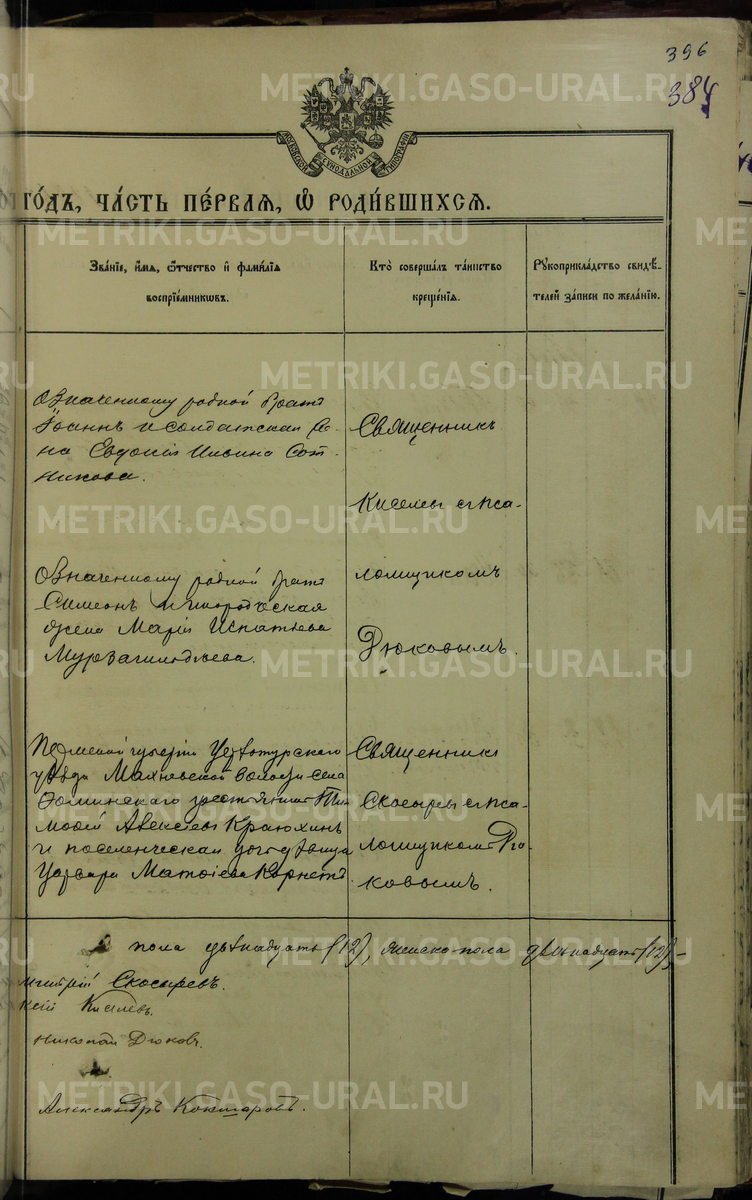 396
384
МОСКОВСКОЙ СѴНОДАЛЬНОЙ ТИПОГРАФІИ
ГО́ДЪ, ЧА́СТЬ ПЕ́РВАЯ, Ѽ РОДИ́ВШИХСЯ.
Зва́нїе, и҆́мя, ѻ҆́тчество и҆ фами́лїя
воспрїе́мникѡвъ.
Кто̀ соверша́лъ та́инство
креще́нїя.
Рꙋкоприкла́дство свидѣ́-
телей за́писи по жела́нїю.
Означенному родной братъ
Іоаннъ и солдатская же-
на Евдокія Ильина Сот-
никова.
Священникъ
Киселевъ съ пса-
ломщикомъ
Дюковымъ.
Означенному родной братъ
Симеонъ и инородческая
жена Марія Ипатьева
Пермской губерніи Верхотурскаго
уѣзда Махневской волости села
Фоминскаго крестьянинъ Ти-
моѳей Алексѣевъ Краюхинъ
и поселенческая дочь дѣвица
Варвара Матвіева
Священникъ
Скосыревъ съ пса-
ломщикомъ Дю-
ковымъ.
пола двѣнадцать (12), женско пола двѣнадцать (12),
Скосыревъ.
Киселевъ.
Николай Дюковъ.
Александръ
METRIKI.GASO-URAL.RU